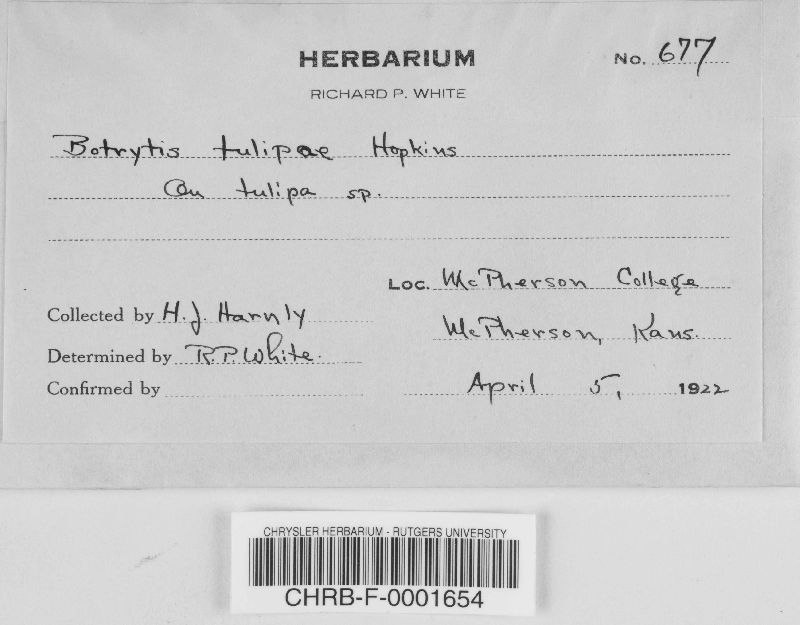 HERBARIUM
No. 677
RICHARD P. WHITE
Botrytis tulipae Hopkins
On tulipa sp.
Loc. McPherson College
Collected by H. J. Harnly
McPherson, Kans.
Determined by R. P. White.
Confirmed by
April 5, 1922
CHRYSLER HERBARIUM - RUTGERS UNIVERSITY
CHRB-F-0001654